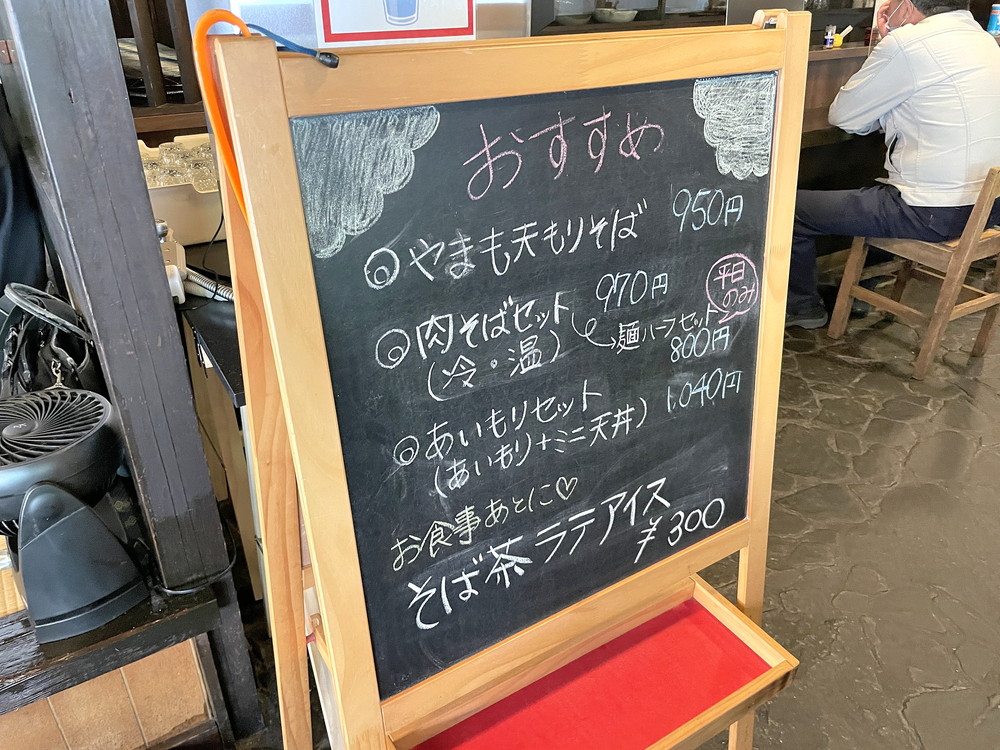 おすすめ
◎やまも天もりそば 950円
◎肉そばセット 970円
(冷・温) 麺ハーフセット 800円
平日
のみ
◎あいもりセット 1,040円
(あいもり+ミニ天丼)
お食事あとに♡
そば茶ラテアイス
¥300